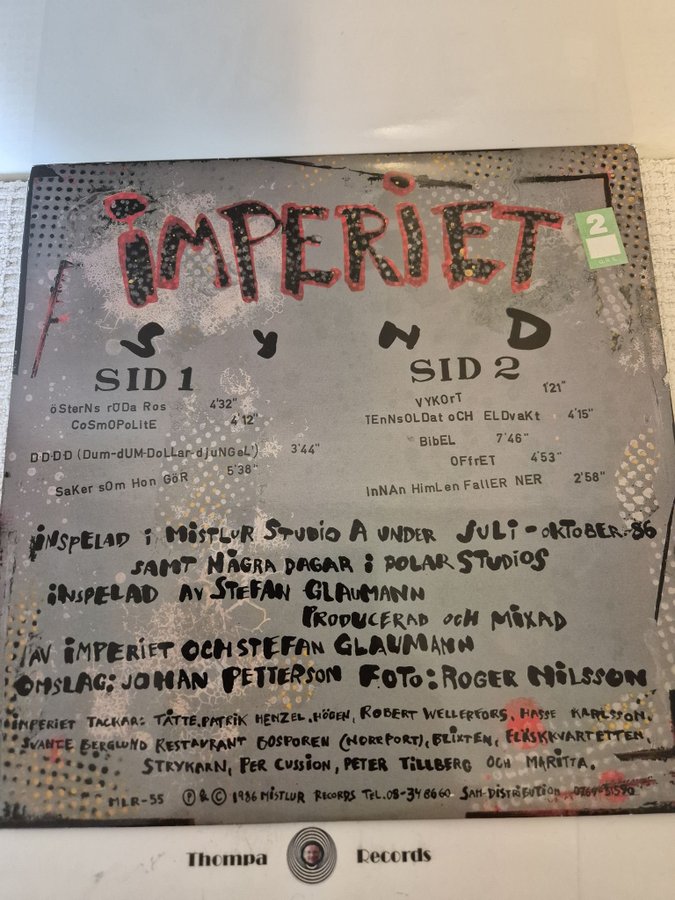 iMPERiET
2
SYND
SID 1
öSterNs rÖDa Ros 4'32"
CoSmOPoLitE 4'12"
D·D·D·D (Dum-dUM-DoLLar-djuNGeL') 3'44"
SaKer sOm Hon GöR 5'38"
SID 2
VYKOrT 1'21"
TEnNsOLDat oCH ELDvaKt 4'15"
BibEL 7'46"
OFfrET 4'53"
InNAn HimLen FallER NER 2'58"
iNSPELAD i MiSTLUR STUDiO A UNDER JULi - OKTOBER-86
SAMT NÅGRA DAGAR i POLAR STUDiOS
iNSPELAD AV STEFAN GLAUMANN
PRODUCERAD OCH MiXAD
AV iMPERiET OCH STEFAN GLAUMANN
OMSLAG: JOHAN PETTERSON FOTO: ROGER NiLSSON
iMPERiET TACKAR: TÅTTE, PATRiK HENZEL, HÖGEN, ROBERT WELLERFORS, HASSE KARLSSON,
SVANTE BERGLUND RESTAURANT BOSPOREN (NORRPORT), BLiXTEN, FLÄSKKVARTETTEN,
STRYKARN, PER CUSSiON, PETER TiLLBERG OCH MARiTTA.
MLR-55 Ⓟ & © 1986 MiSTLUR RECORDS TEL. 08-34 86 60 SAM-DiSTRiBUTiON 0764-31590
Thompa Records